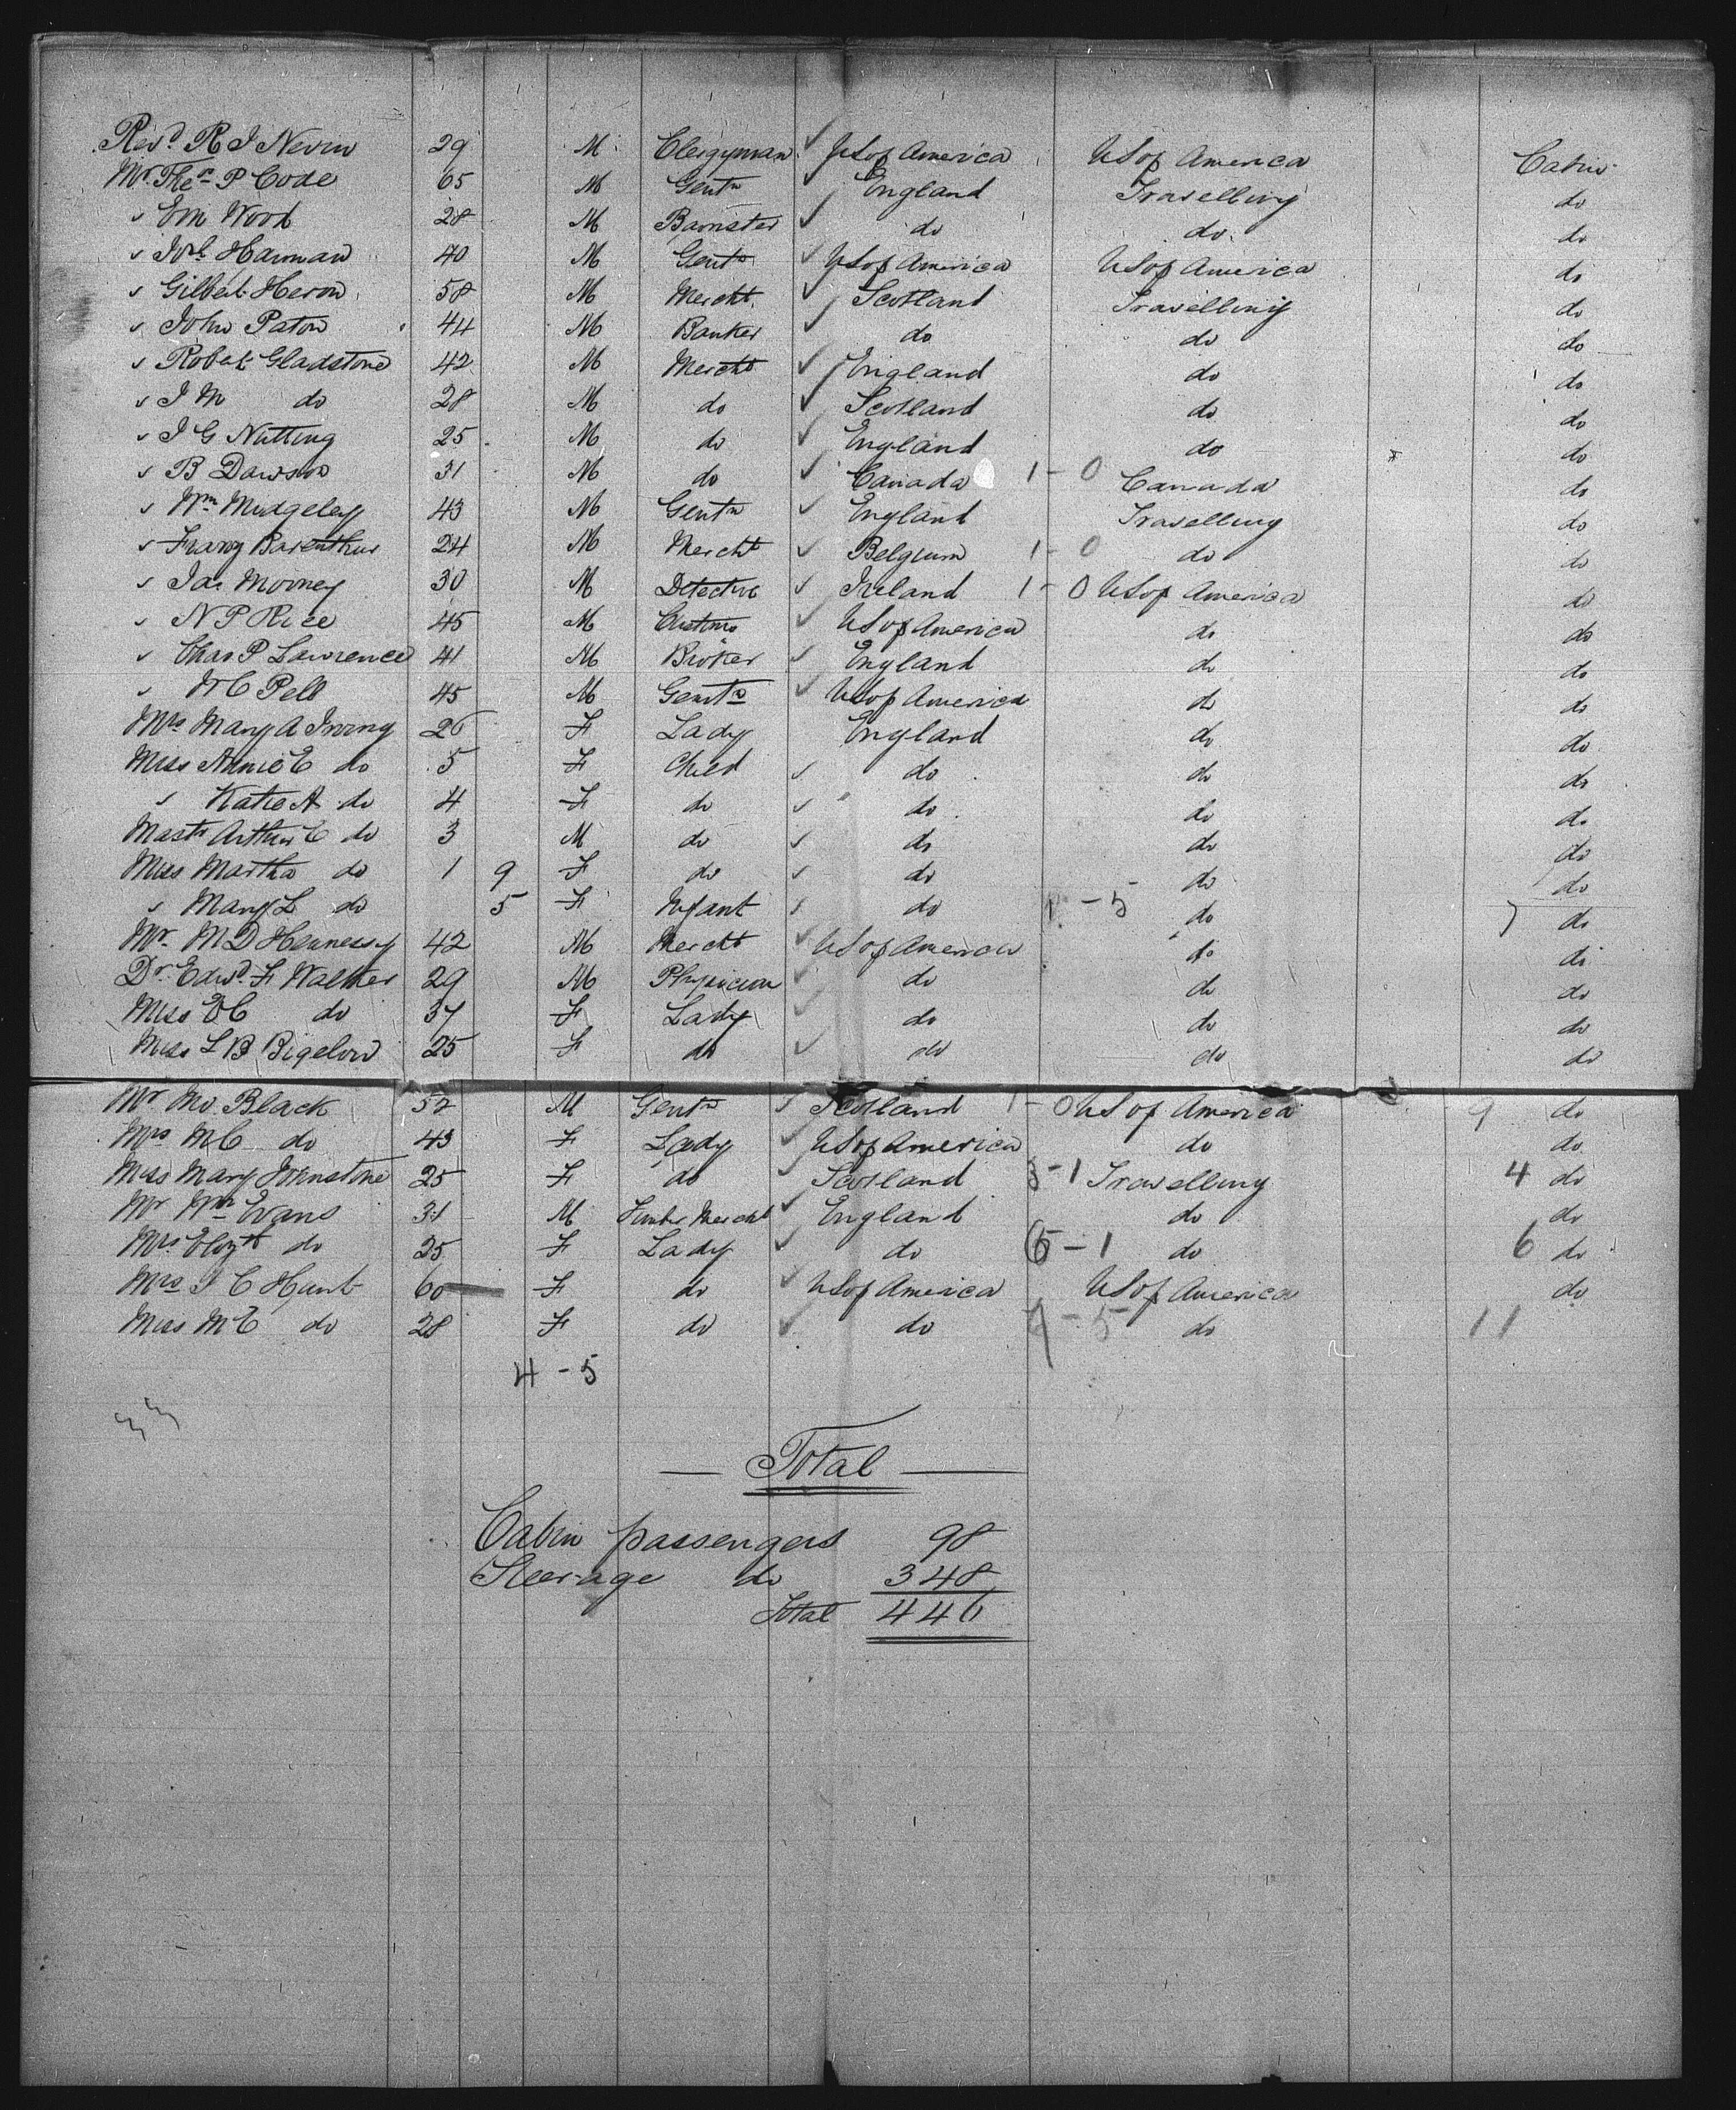 Revd. R J Nevin 29 M Clergyman US of America US of America Cabin
Mr. Thos P Code 65 M Gentn England Travelling do
" Em Wood 28 M Barrister do do do
" Harman 40 M Gentn US of America US of America do
" Gilbert Heron 58 M Mercht Scotland Travelling do
" John Paton 44 M Banker do do do
" Robert Gladstone 42 M Mercht England do do
" J M do 28 M do Scotland do do
" J G Nutting 25 M do England do do
" B Dawson 31 M do Canada 1-0 Canada do
" Wm Midgeley 43 M Gentn England Travelling do
" Franz Barenthus 24 M Mercht Belgium 1-0 do do
" Jas Mooney 30 M Detective Ireland 1-0 US of America do
" N P Rice 45 M Customs US of America do do
" Chas P Lawrence 41 M Broker England do do
" W C Pell 45 M Gentn US of America do do
Mrs Mary A Irving 26 F Lady England do do
Miss Annie E do 5 F Child do do do
" Katie A do 4 F do do do do
Mastr Arthur C do 3 M do do do do
Miss Martha do 1 9 F do do do do
" Mary L do 5 F Infant do 1-5 do 7 do
Mr. M D Hennessy 42 M Mercht US of America do do
Dr. Edwd. F Walther 29 M Physician do do do
Miss E C do 37 F Lady do do do
Miss L B Bigelow 25 F do do do do
Mr Mo Black 52 M Gentn Scotland 1-0 US of America 9 do
Mrs M C do 43 F Lady US of America do do
Miss Mary Johnstone 25 F do Scotland 3-1 Travelling 4 do
Mr Wm Evans 31 M Timber Mercht England do do
Mrs Elizth do 25 F Lady do 6-1 do 6 do
Mrs J C Hunt 60 F do US of America US of America do
Miss M C do 28 F do do 7-5 do 11
4-5
33
Total
Cabin passengers 98
Steerage do 348
Total 446